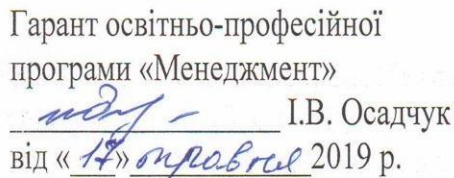 Гарант освітньо-професійної
програми «Менеджмент»
І.В. Осадчук
від «17» травня 2019 р.